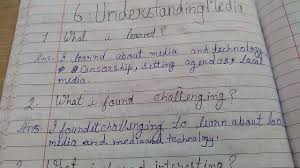 6. Understanding Media
1. What i learned?
Ans- I learnd about media and technology
censorship, setting agendas local
media.
2. What i found challenging?
Ans- I found it challenging to learn about
media and media and technology.
3. What i found interesting?